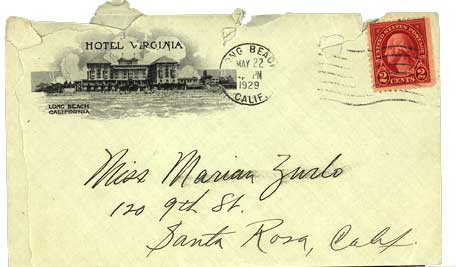 HOTEL VIRGINIA
LONG BEACH
CALIFORNIA
LONG BEACH
MAY 22
PM
1929
CALIF.
UNITED STATES POSTAGE
2 CENTS 2
Miss Marian Zurlo
120 9th St.
Santa Rosa, Calif.